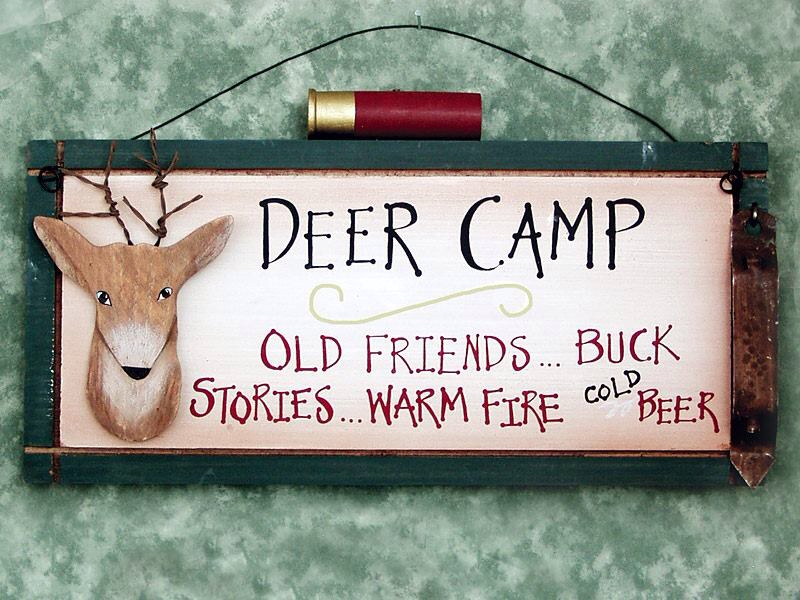 DEER CAMP
OLD FRIENDS... BUCK
STORIES...WARM FIRE COLD BEER